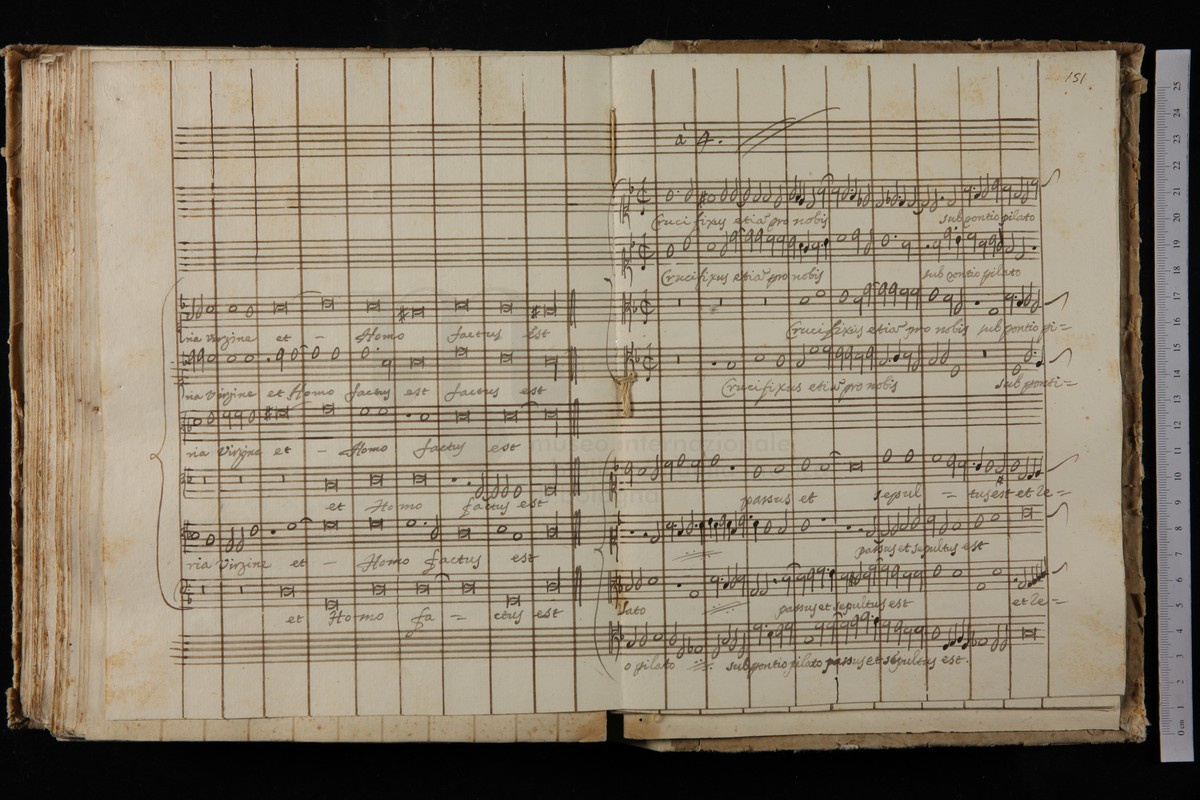 ria Virgine et - Homo factus est
ria Virgine et Homo factus est factus est
ria Virgine et - Homo factus est
et Homo factus est
ria Virgine et - Homo factus est
et Homo fa = ctus est
151
à 4.
Crucifixus etiã pro nobis sub pontio pilato
Crucifixus etiã pro nobis sub pontio pilato
Crucifixus etiã pro nobis sub pontio pi=
Crucifixus etiã pro nobis sub ponti=
passus et sepul = tus est et Re=
passus et sepultus est
lato passus et sepultus est et Re=
o pilato sub pontio pilato passus et sepultus est.
museo internazionale
bologna
25
24
23
22
21
20
19
18
17
16
15
14
13
12
11
10
9
8
7
6
5
4
3
2
1
0 cm